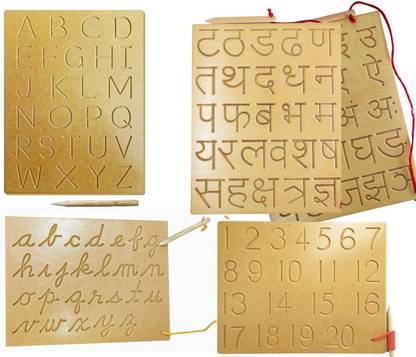 A B C D
E F G H I
J K L M
N O P Q
R S T U V
W X Y Z
ट ठ ड ढ ण
त थ द ध न
प फ ब भ म
य र ल व श ष
स ह क्ष त्र ज्ञ
उ
ऐ
अं अः
घ ङ
झ ञ
a b c d e f g
h i j k l m n
o p q r s t u
v w x y z
1 2 3 4 5 6 7
8 9 10 11 12
13 14 15 16
17 18 19 20